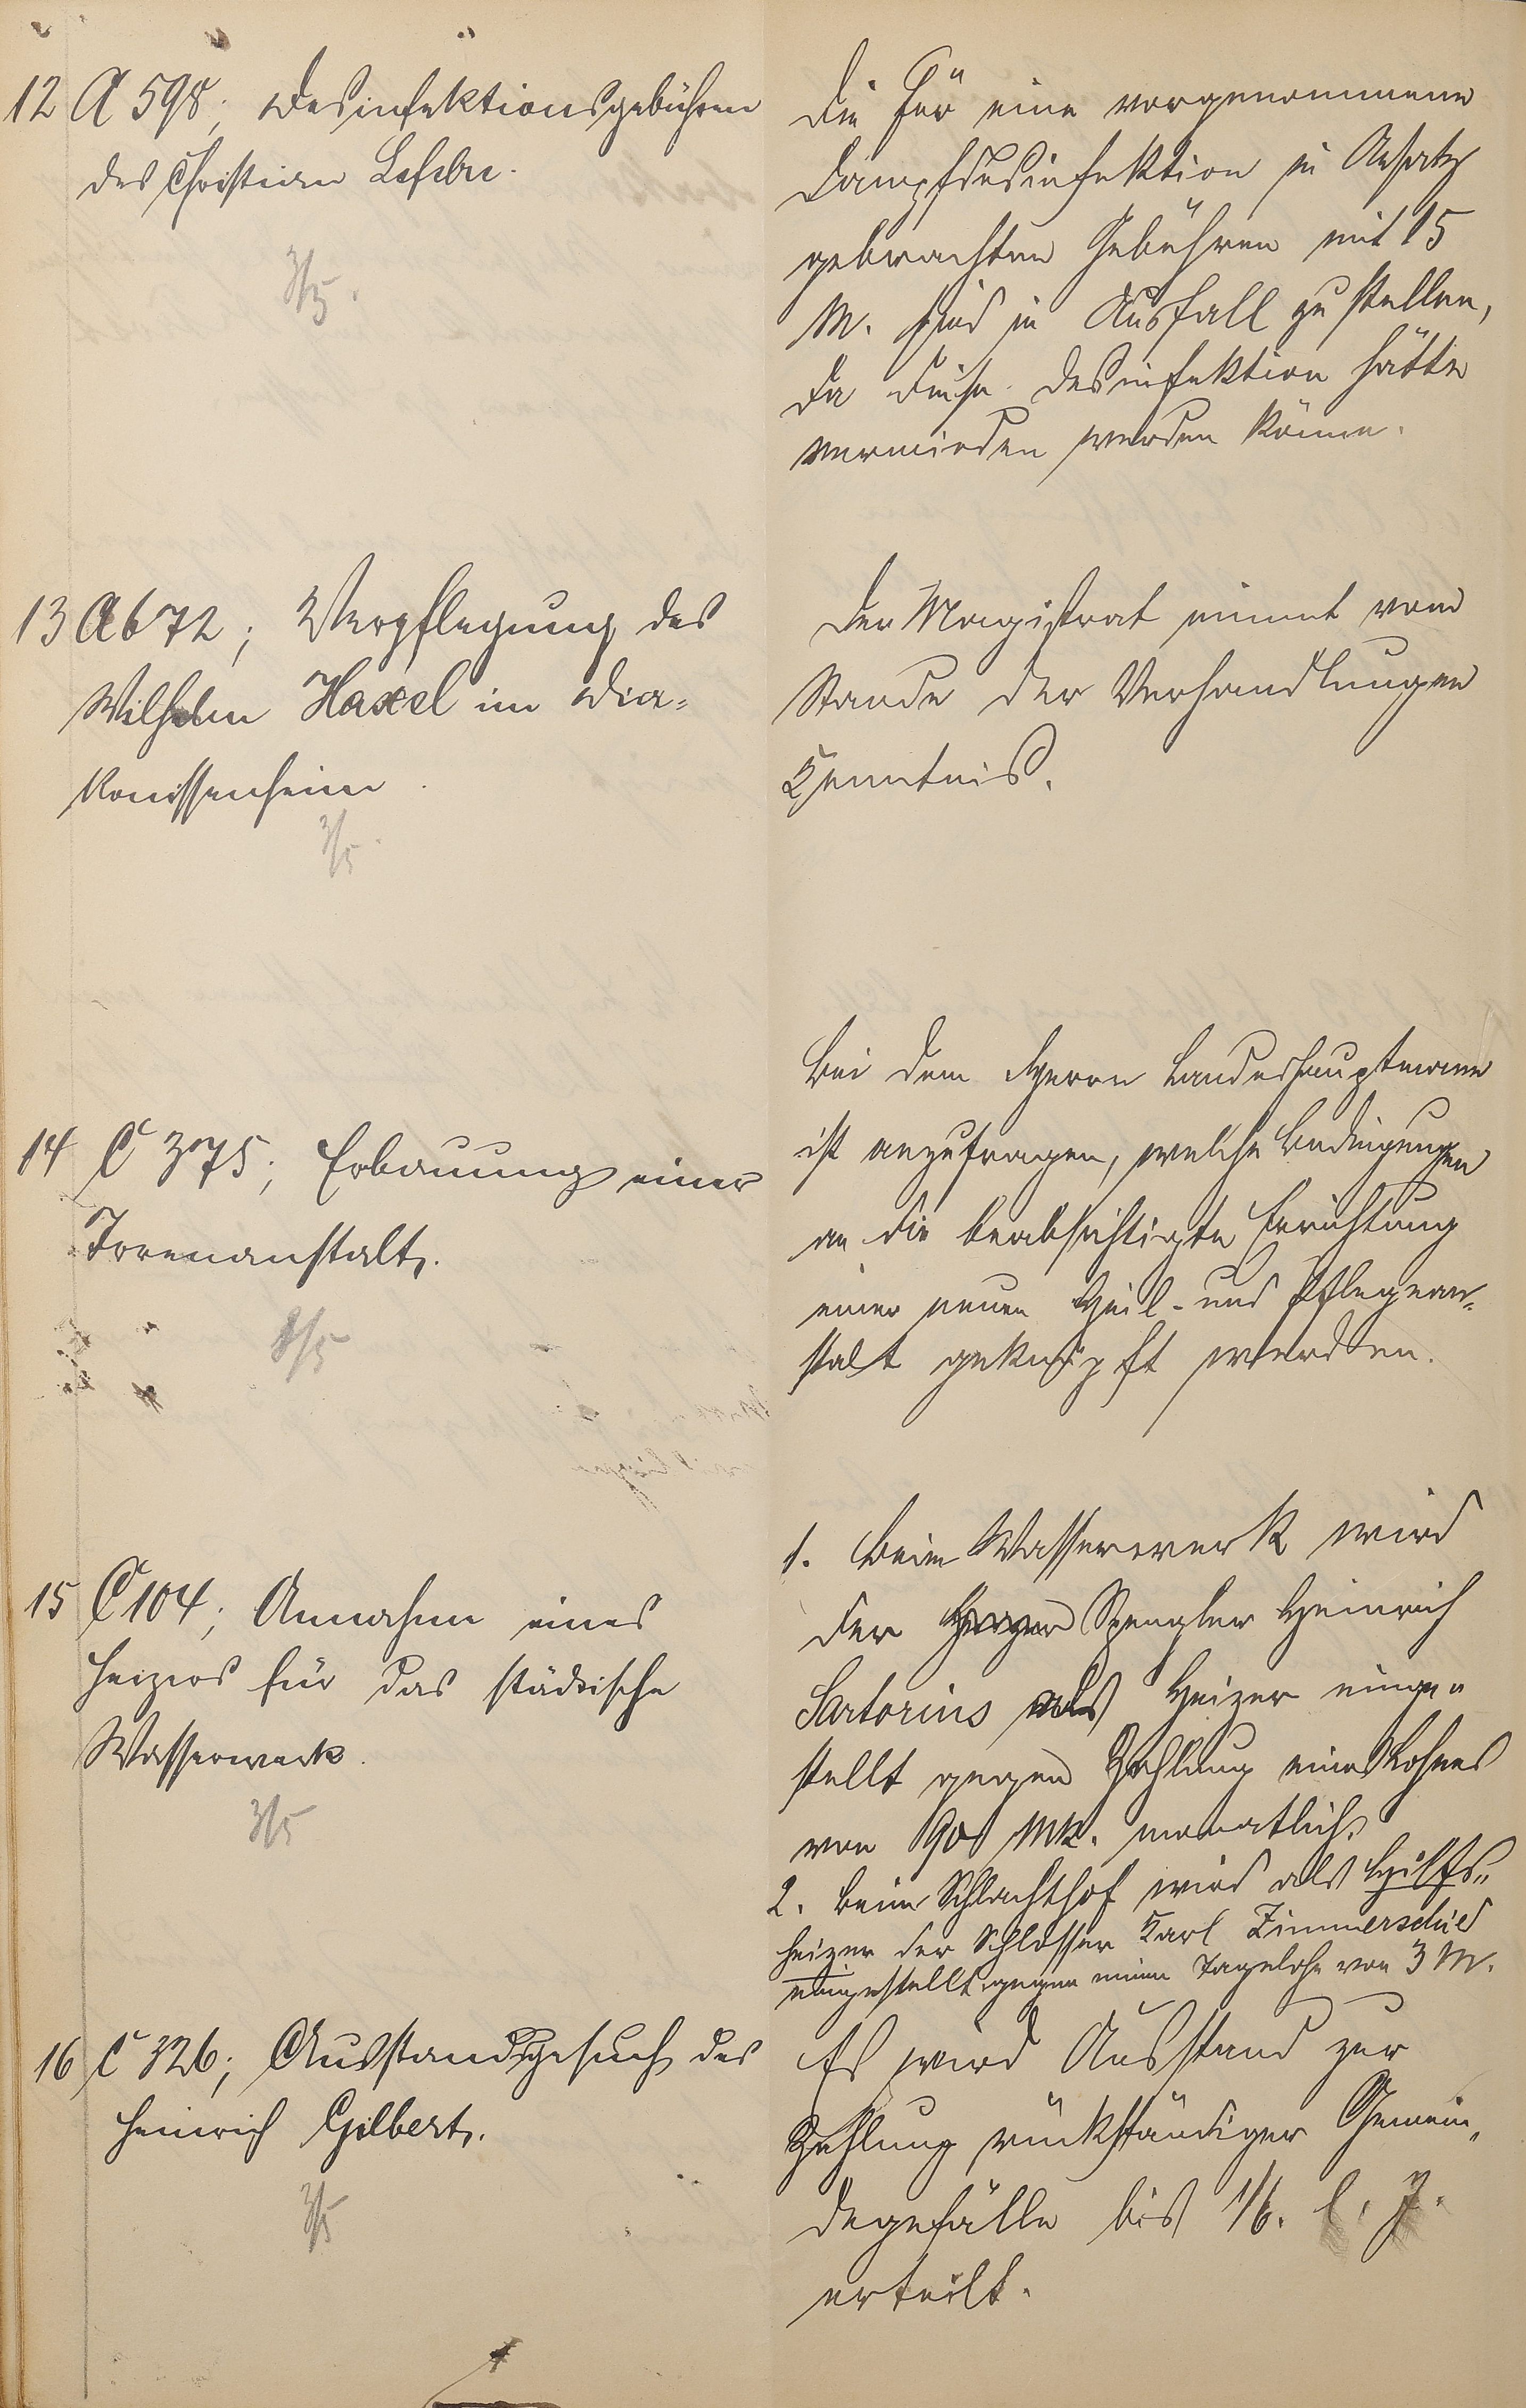 12 A 598; Desinfektionsgebühren
des Christian Lefebre.
3/5.
Die für eine vorgenommene
Dampfdesinfektion in Ansatz
gebrachten Gebühren mit 15
M. sind in Ausfall zu stellen,
da diese Desinfektion hätte
vermieden werden könne.
13 A 672; Verpflegung des
Wilhelm Haxel im Dia=
konissenheim
3/5.
Der Magistrat nimmt vom
Stande der Verhandlungen
Kenntnis.
14 C 375; Erbauung einer
Irrenanstalt.
8/5
Bei dem Herrn Landeshauptmann
ist anzufragen, welche Bedingungen
an die beabsichtigte Errichtung
einer neuen Heil- und Pflegean=
stalt geknüpft werden.
15 C 104; Annahme eines
Heizers für das städtische
Wasserwerk.
3/5
1. Beim Wasserwerk wird
der Spengler Heinrich
Sartorius als Heizer einge=
stellt gegen Zahlung eines Lohnes
von 90 Mk. monatlich.
2. Beim Schlachthof wird als Hilfs=
heizer der Schlosser Karl Zimmerschied
eingestellt gegen einen Tagelohn von 3 M.
16 C 326; Ausstandsgesuch des
Heinrich Gilbert.
3/5
Es wird Ausstand zur
Zahlung rückständiger Gemein=
degefälle bis 1/6. l. J.
erteilt.